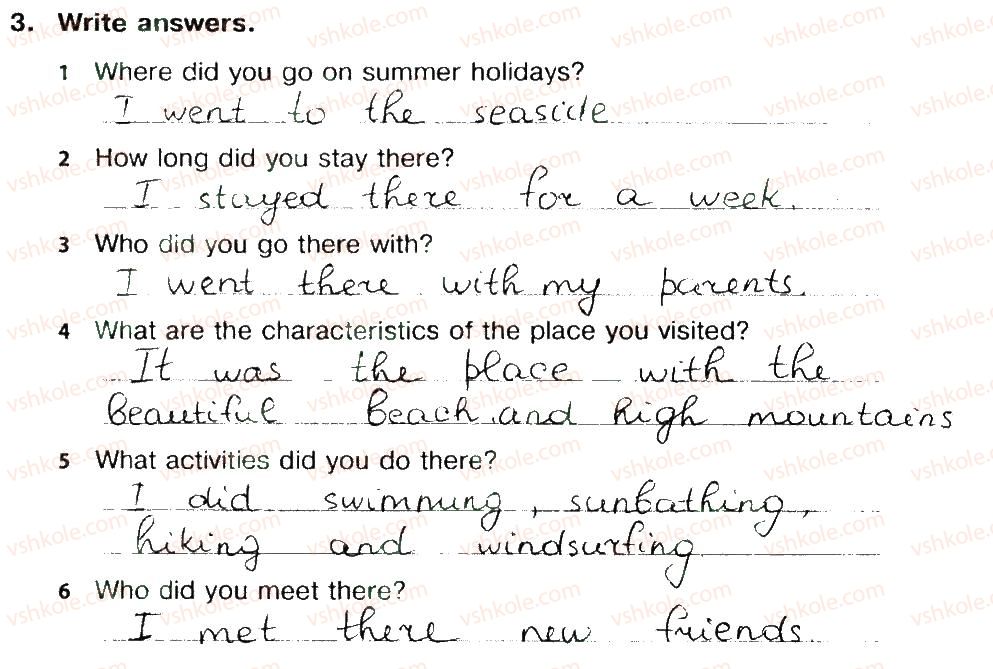 3. Write answers.
1 Where did you go on summer holidays?
I went to the seaside
2 How long did you stay there?
I stayed there for a week.
3 Who did you go there with?
I went there with my parents.
4 What are the characteristics of the place you visited?
It was the place with the
beautiful beach and high mountains
5 What activities did you do there?
I did swimming, sunbathing,
hiking and windsurfing
6 Who did you meet there?
I met there new friends.